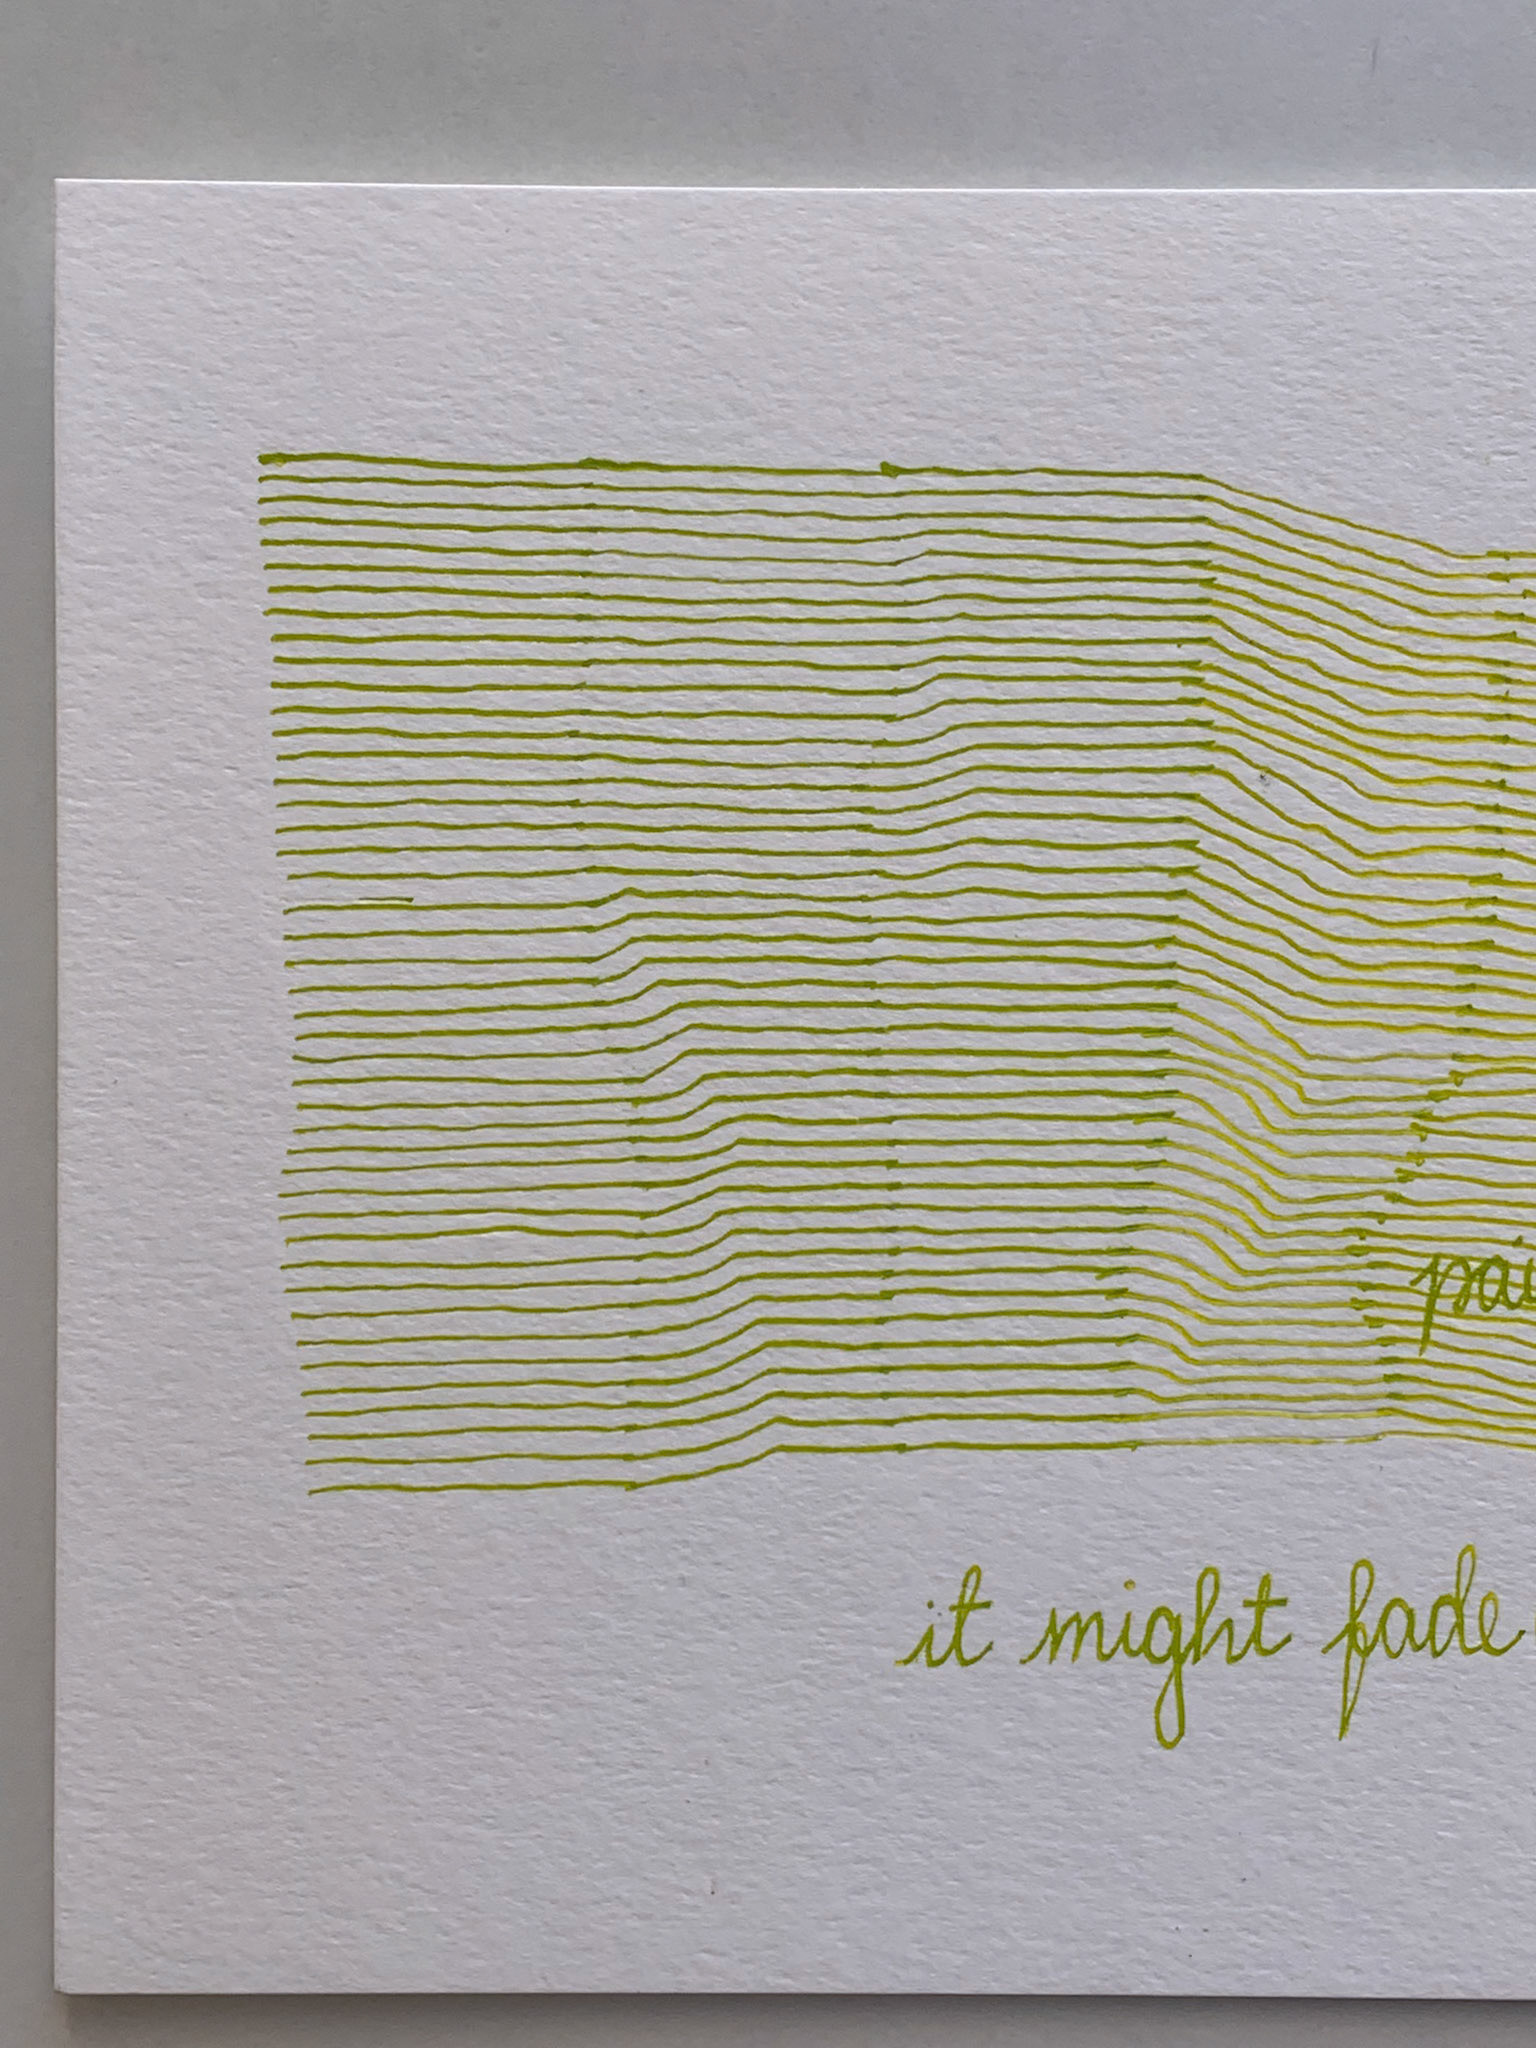 pai
it might fade